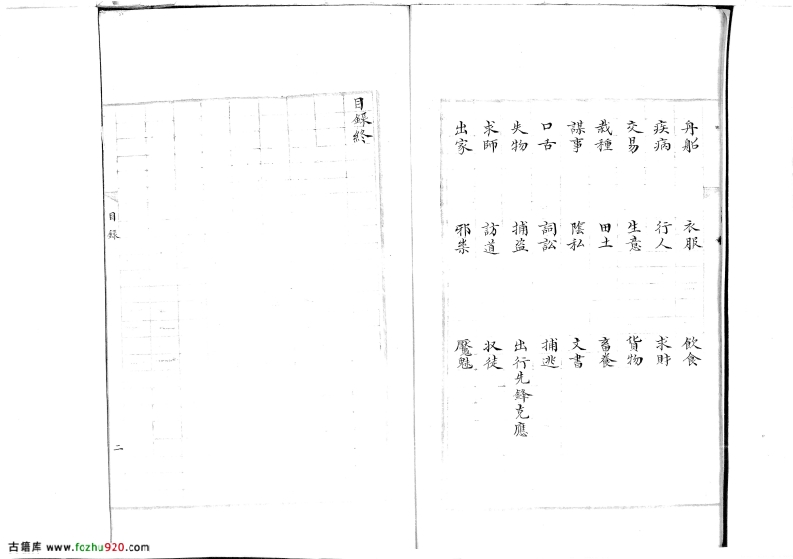 舟船　衣服　飲食
疾病　行人　求財
交易　生意　貨物
栽種　田土　畜養
謀事　陰私　文書
口舌　詞訟　捕逃
失物　捕盜　出行先鋒克應
求師　訪道　収徒
出家　邪祟　魘魅
目録終
目録
二
古籍库 www.fozhu920.com